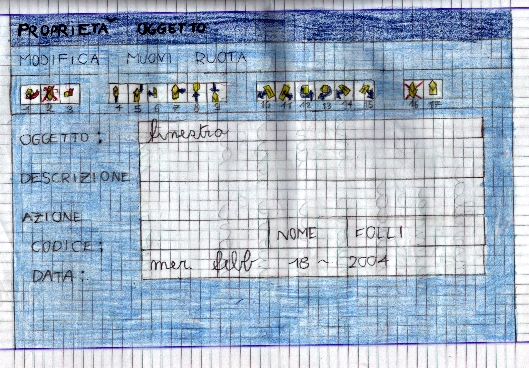 PROPRIETA' OGGETTO
MODIFICA MUOVI RUOTA
1 2 3 4 5 6 7 8 9 10 11 12 13 14 15 16 17
OGGETTO: finestra
DESCRIZIONE
AZIONE
CODICE: NOME FOLLI
DATA: mer. febb 18 ~ 2004